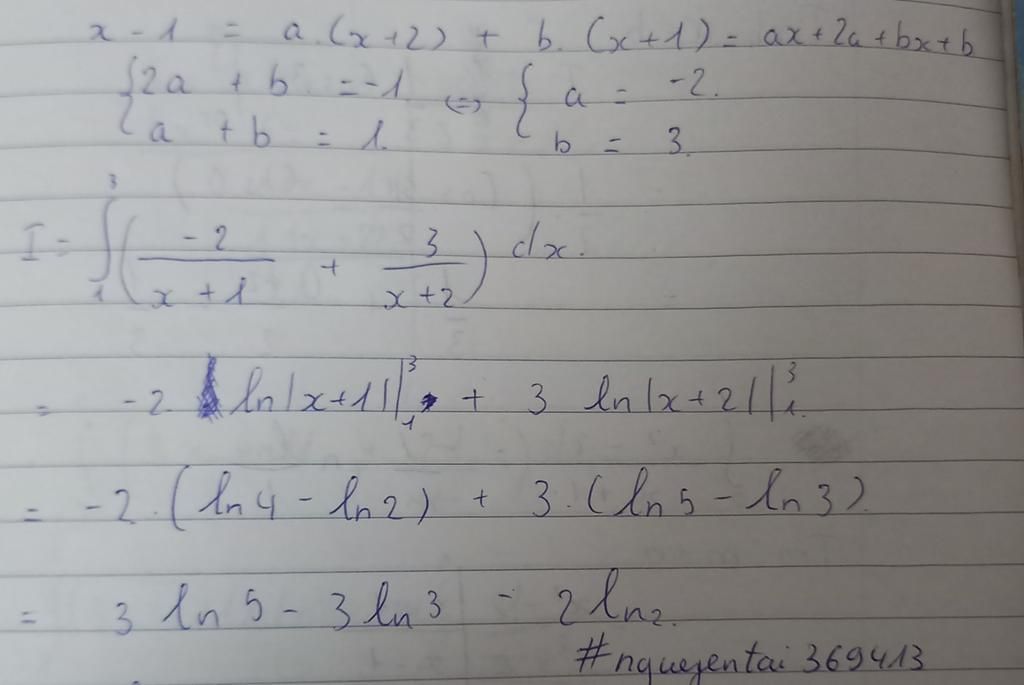 x - 1 = a.(x+2) + b.(x+1) = ax+2a+bx+b
{2a + b = -1 <=> { a = -2.
{a + b = 1. b = 3.
I = ∫₁³ (-2/(x+1) + 3/(x+2)) dx.
= -2. ln|x+1||₁³ + 3 ln|x+2||₁³.
= -2.(ln4 - ln2) + 3.(ln5 - ln3).
= 3 ln5 - 3 ln3 - 2 ln2.
#nguyentai 369413